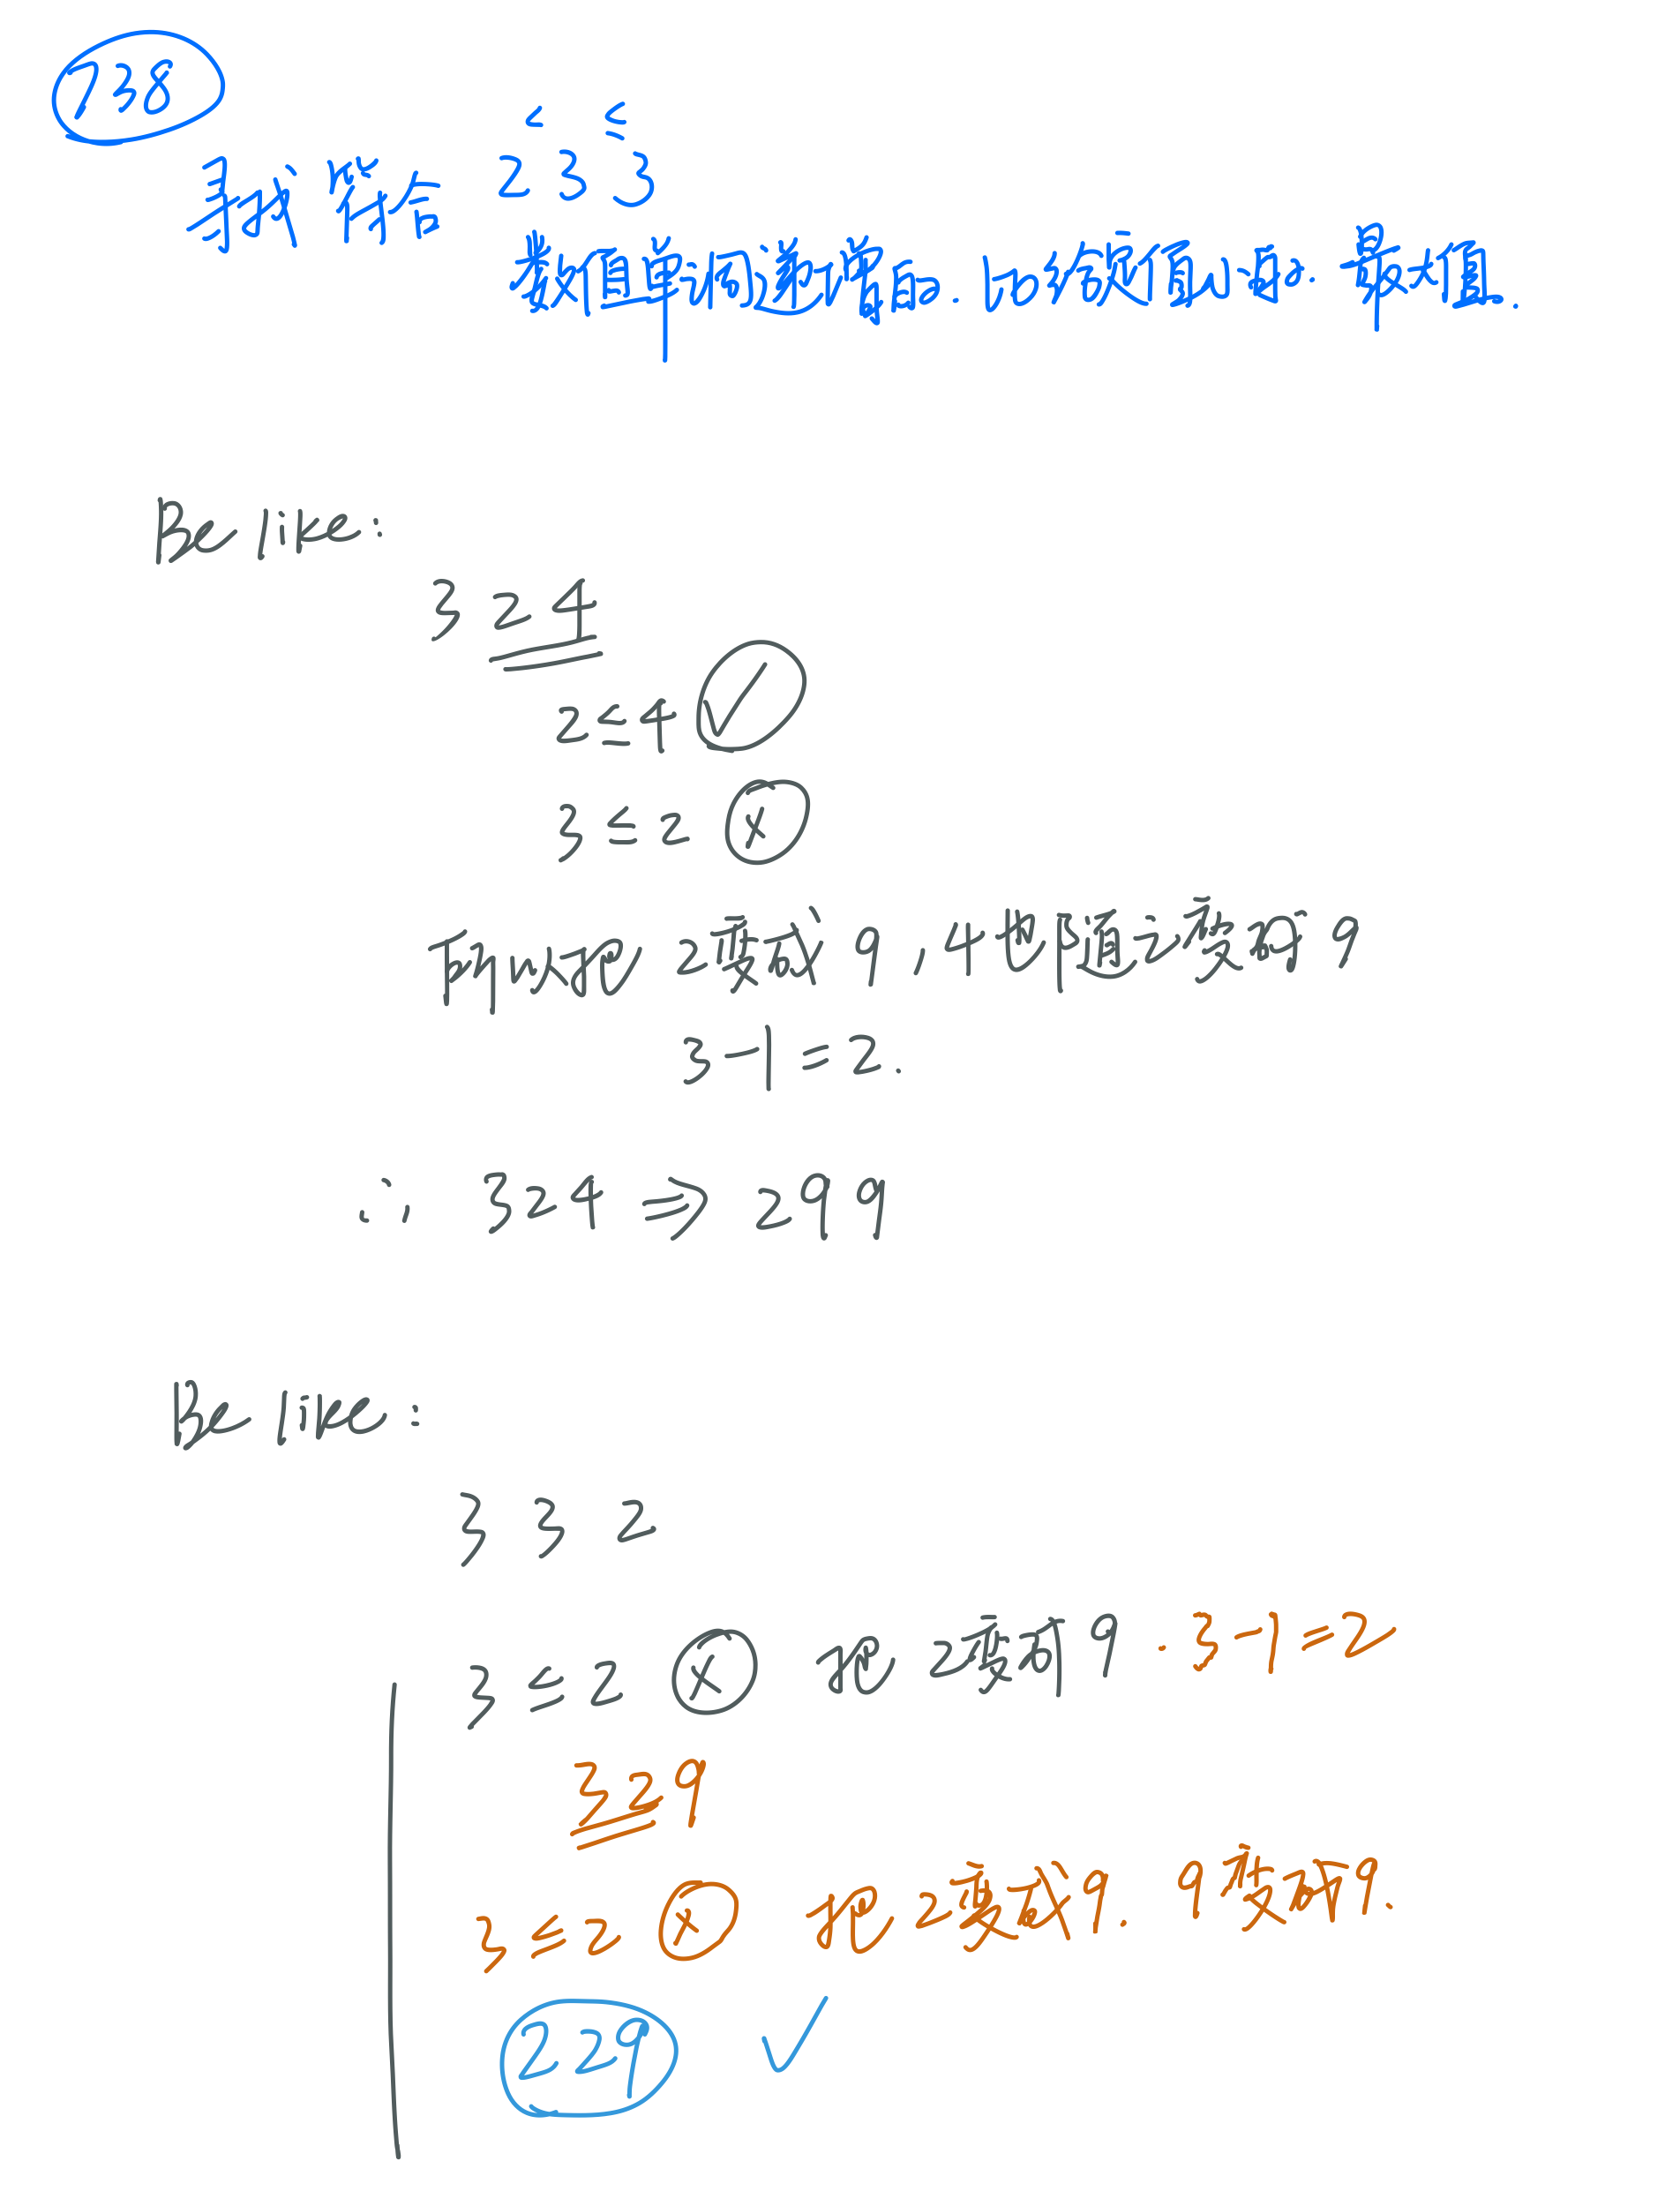 738
< ≤
寻找 符合 2 3 3
数值单调递增.
最大值.
Be like:
3 2 4
2 ≤ 4 ✓
3 ≤ 2 ×
所以把 2变成 9, 4也随之变为 9
3 - 1 = 2.
∴ 324 ⇒ 299
Be like:
3 3 2
3 ≤ 2 × 把 2变为 9. 3-1=2
329
3 ≤ 2 × 把 2变成9. 9变成9.
229 ✓